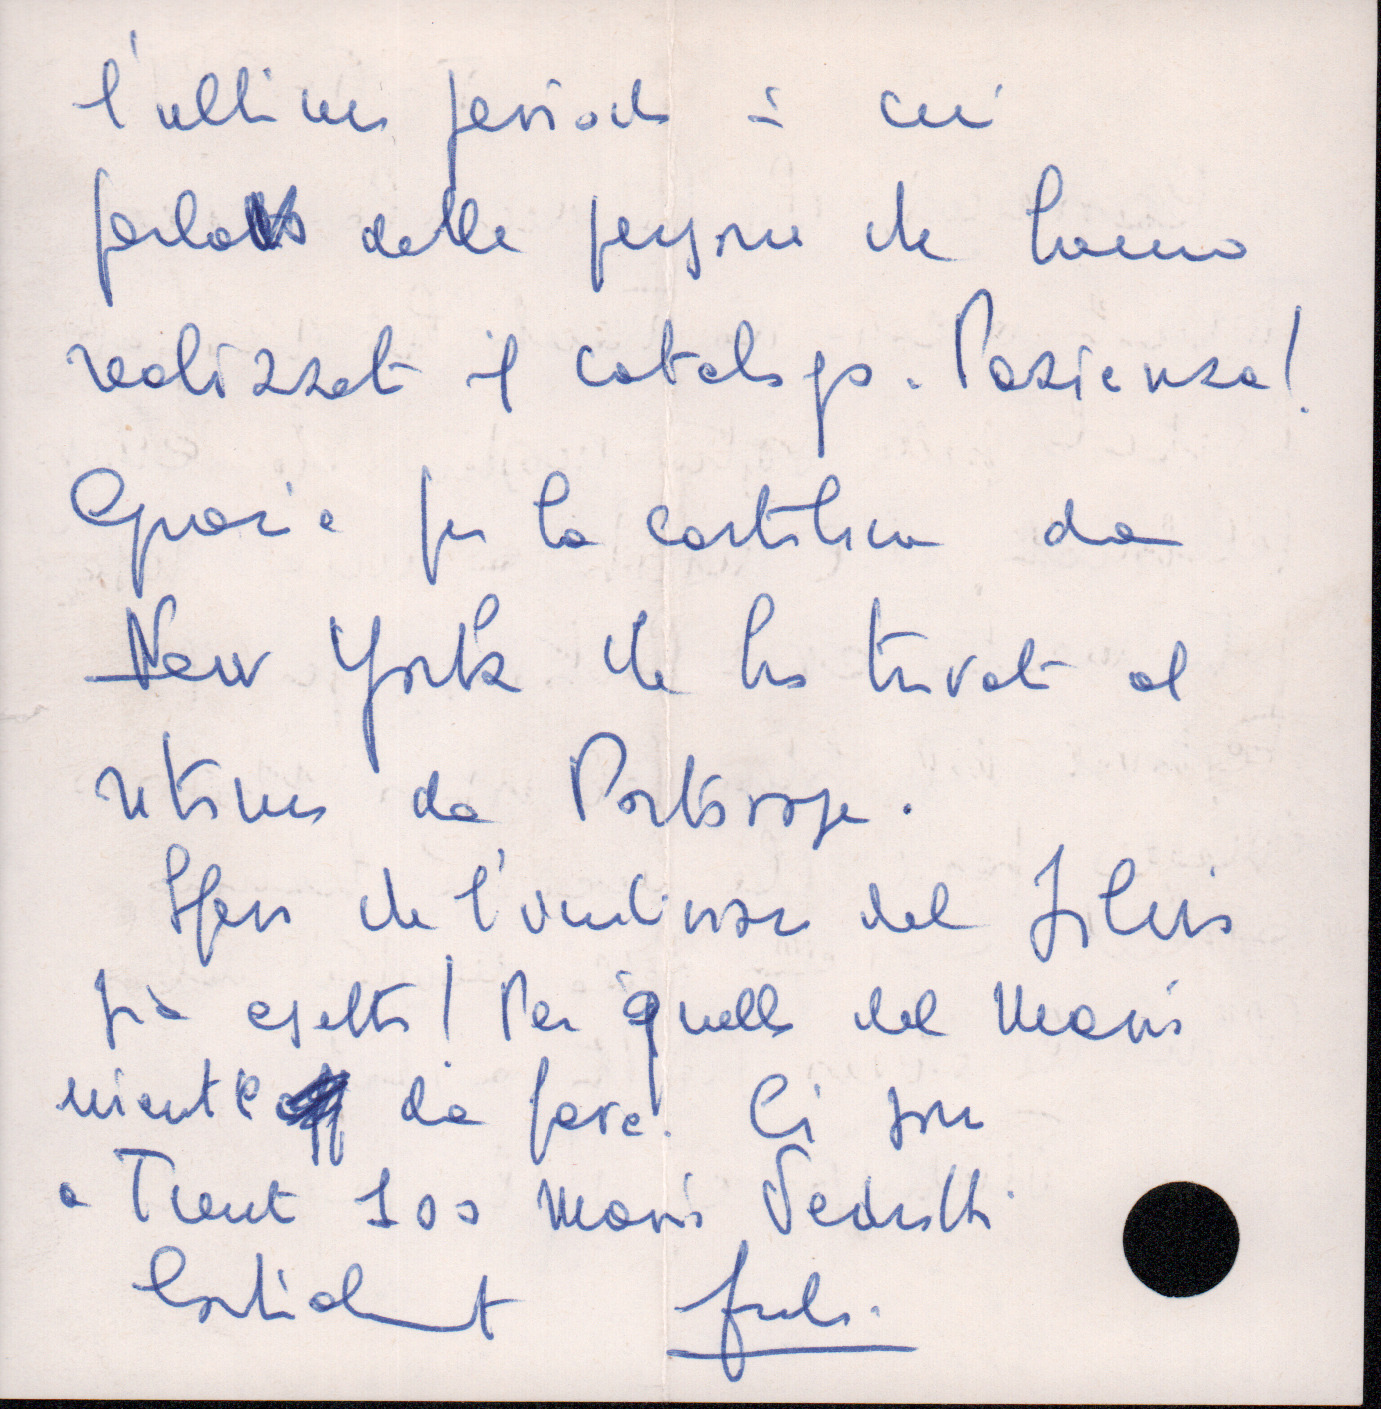 l'ultimo periodo è cui
parlato delle persone che hanno
realizzato il catalogo. Pazienza!
Grazie per la cartolina da
New York che ho trovato al
ritorno da Portorose.
Spero che l'indirizzo del Silvio
sia esatto! Per quello del Mario
niente da fare. Ci sono
a Trento 100 Mario Pedrotti
Cordialment